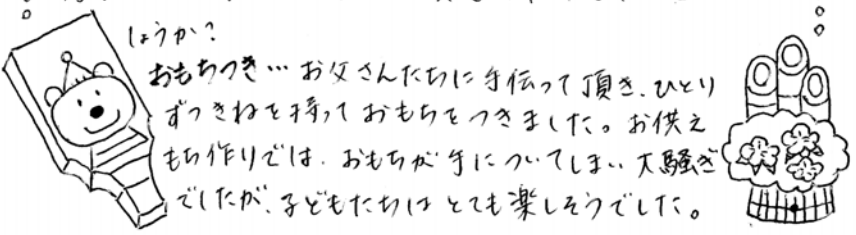 しょうか?
おもちつき…お父さんたちに手伝って頂き、ひとり
ずつきねを持っておもちをつきました。お供え
もち作りでは、おもちが手についてしまい大騒ぎ
でしたが、子どもたちはとても楽しそうでした。